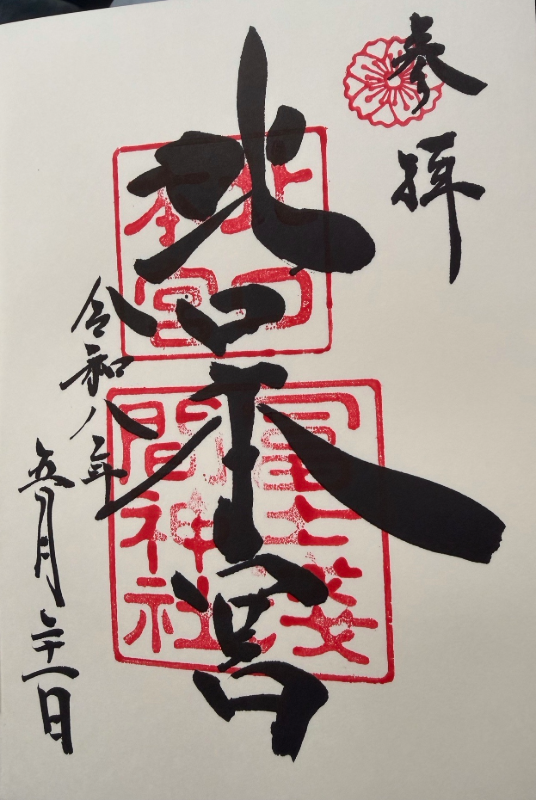 奉拝
北口本宮
北口
本宮
冨士浅
間神社
令和八年
五月二十一日